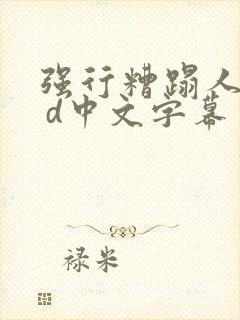 强行糟蹋人
d中文字幕
禄米